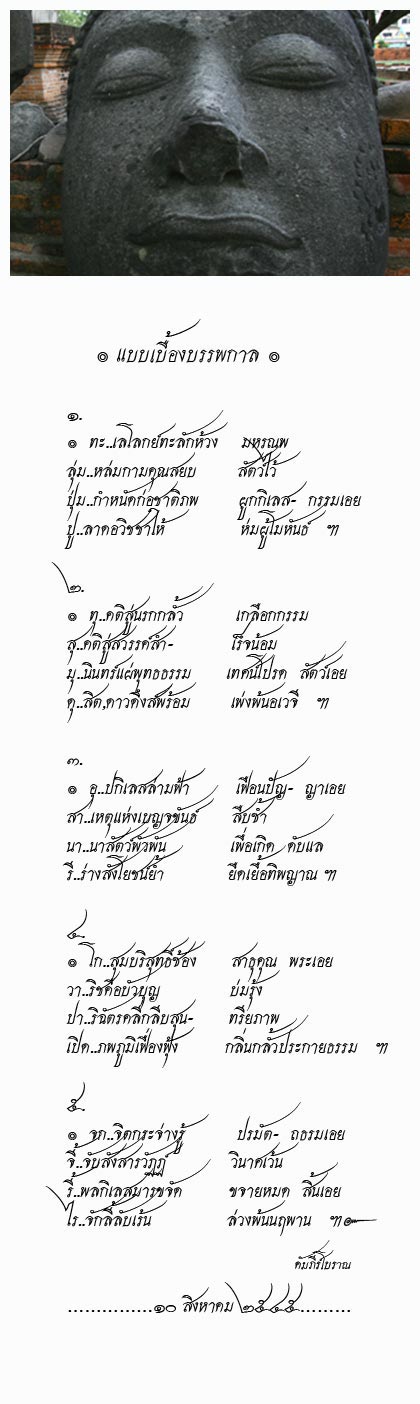 ๏ แบบเบื้องบรรพกาล ๏
๑.
๏ ทะ..เลโลกย์ทะลักห้วง มหรณพ
ลุ่ม..หล่มกามคุณสยบ สัตว์ไว้
ปุ่ม..กำหนัดก่อชาติภพ ผูกกิเลส- กรรมเอย
ปู..ลาดอวิชชาให้ ห่มผู้โมหันธ์ ฯ
๒.
๏ ทุ..คติสู่นรกกลั้ว เกลือกกรรม
สุ..คติสู่สวรรค์ล้ำ- เร็จน้อม
มุ..นินทร์แผ่พุทธธรรม เทศน์โปรด สัตว์เอย
ดุ..สิต,ดาวดึงส์พร้อม เพ่งพ้นอเวจี ฯ
๓.
๏ อุ..ปกิเลสล่ามฟ้า เฟือนปัญ- ญาเอย
สา..เหตุแห่งเบญจขันธ์ สืบช้ำ
นา..นาสัตว์พัวพัน เพื่อเกิด ดับแล
รี..ร่างสังโยชน์ย้ำ ยึดเยื้อทิพญาณ ฯ
๔.
๏ โก..สุมบริสุทธิ์ซ้อง สาธุคุณ พระเอย
วา..ริชคือบัวบุญ บ่มรุ้ง
ปา..ริฉัตรคลี่กลีบสุน- ทรียภาพ
เปิด..ภพภูมิเฟื่องฟุ้ง กลิ่นกลั้วประกายธรรม ฯ
๕.
๏ จก..จิตกระจ่างรู้ ปรมัต- ถธรมเอย
จี้..จับสังสารวัฏฏ์ วินาศเว้น
รี้..พลกิเลสมารขจัด ขจายหมด สิ้นเอย
ไร..จักลี้ลับเร้น ล่วงพ้นนฤพาน ฯ๛
คัมภีร์โบราณ
...............๑๐ สิงหาคม ๒๕๔๕.........